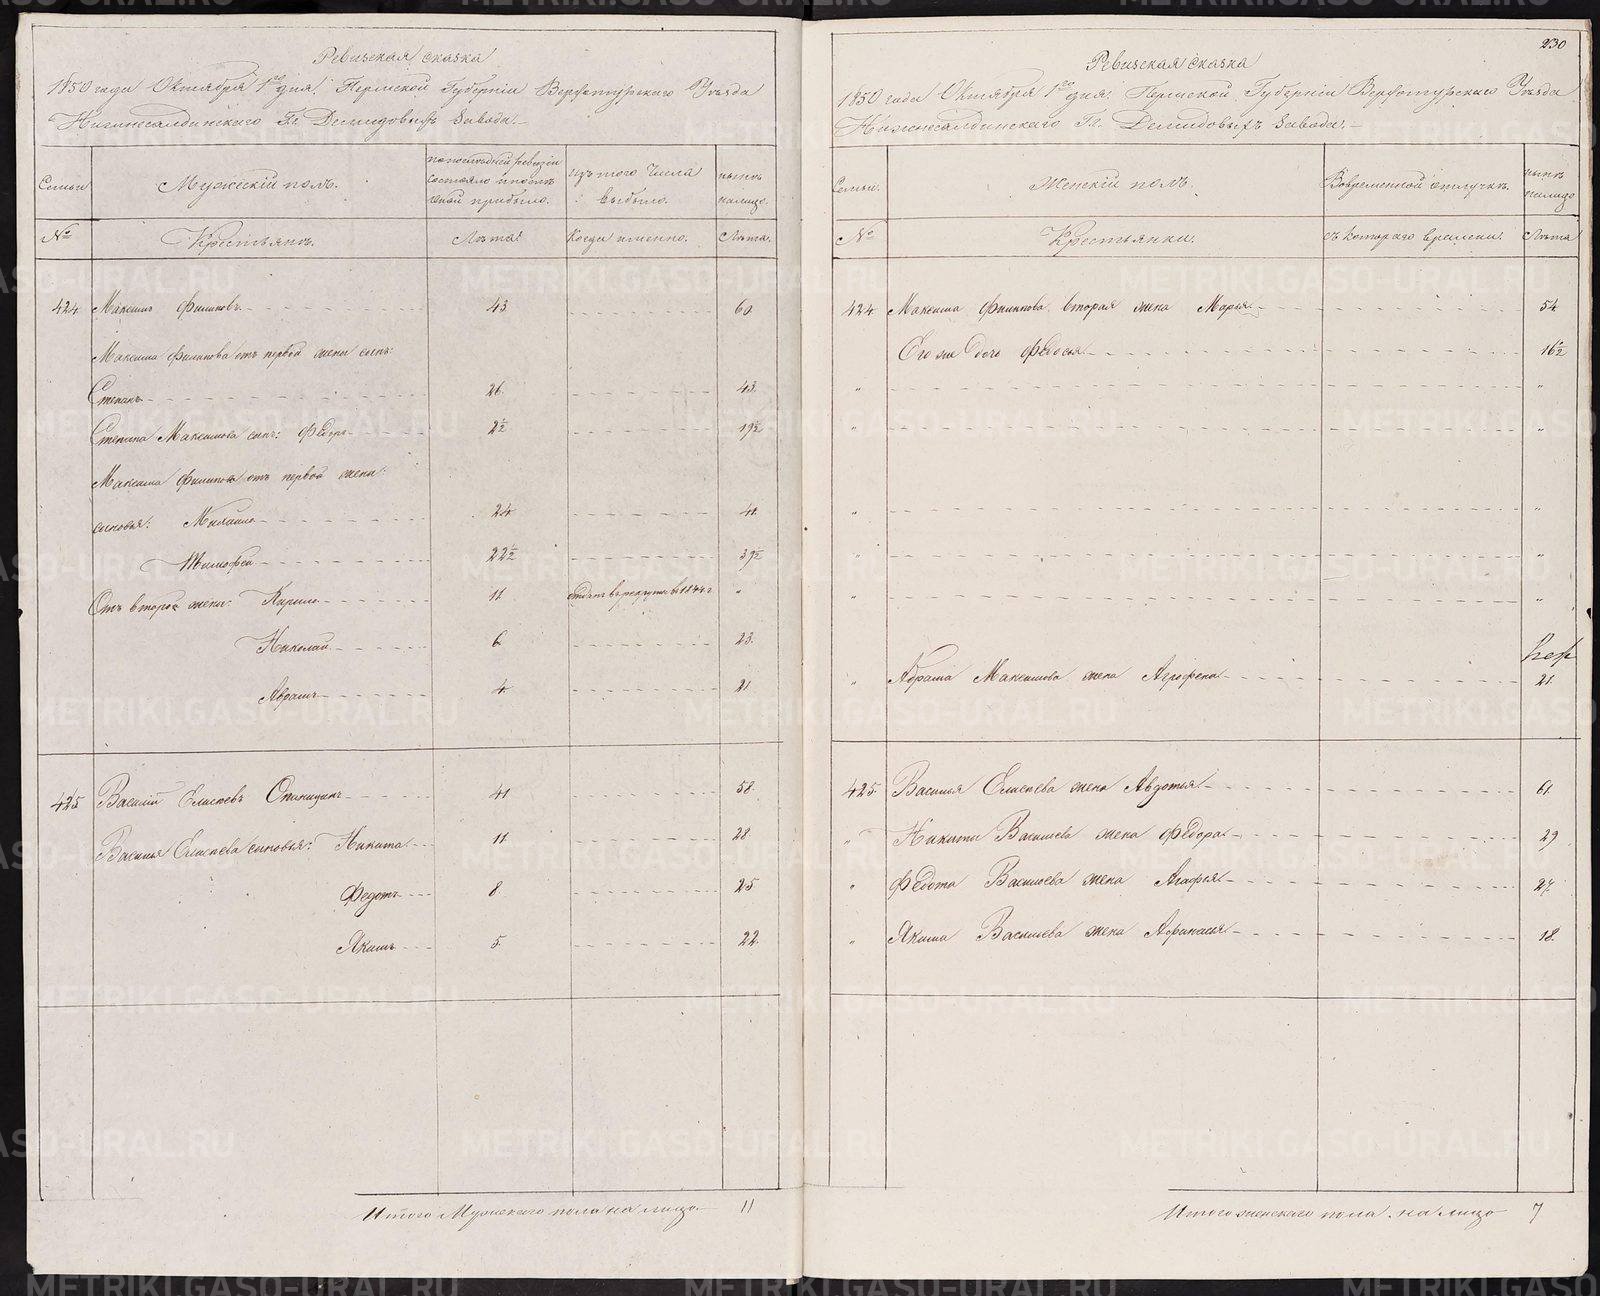 Ревизская сказка
1850 года Октября 1го дня. Пермской Губерніи Верхотурскаго Уѣзда
Нижнесалдинскаго Гг. Демидовыхъ Завода.
Семьи Мужескій полъ. по последней ревизіи состояло и после оной прибыло. изъ того числа выбыло. нынѣ налицо.
№ Крестьянъ. Лѣта. Когда именно. Лѣта.
424 Максимъ Филиповъ 43. 60
Максима Филипова отъ первой жены сынъ:
Степанъ 26. 43.
Степана Максимова сынъ: Федоръ 2½ 19½
Максима Филипова отъ первой жены:
сыновья: Михайло 24 41.
Тимофей 22½ 39½
Отъ второй жены: Кирило 11 отданъ в рекруты в 1844 г. „
Николай 6 23.
Авдамъ 4 21
425 Василій Елисѣевъ 41 58.
Василья Елисѣева сыновья: Никита 11 28
Федотъ 8. 25
Якимъ 5. 22.
Итого Мужескаго пола на лицо 11
230
Ревизская сказка
1850 года Октября 1го дня. Пермской Губерніи Верхотурскаго Уѣзда
Нижнесалдинскаго Гг. Демидовыхъ Завода.
Семьи. Женскій полъ. Вовременной отлучкѣ. нынѣ налицо
№ Крестьянки. съ котораго времени. Лѣта
424 Максима Филипова вторая жена Марья 54
Его же дочь Федосья 16½
„ „
„ „
„ „
„ „
„ „
„ Абрама Максимова жена Агрофена 21.
425. Василья Елисѣева жена Авдотья 61.
„ Никиты Васильева жена Федора 29
„ Федота Васильева жена Агафья 27.
„ Якима Васильева жена Афанасья 18.
Итого женскаго пола на лицо 7
METRIKI.GASO-URAL.RU